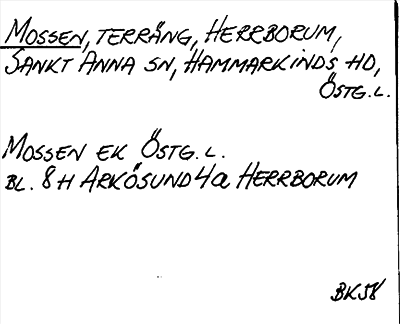 MOSSEN, TERRÄNG, HERRBORUM,
SANKT ANNA SN, HAMMARKINDS HD,
ÖSTG.L.
MOSSEN EK ÖSTG.L.
BL. 8H ARKÖSUND 4a HERRBORUM
BK58